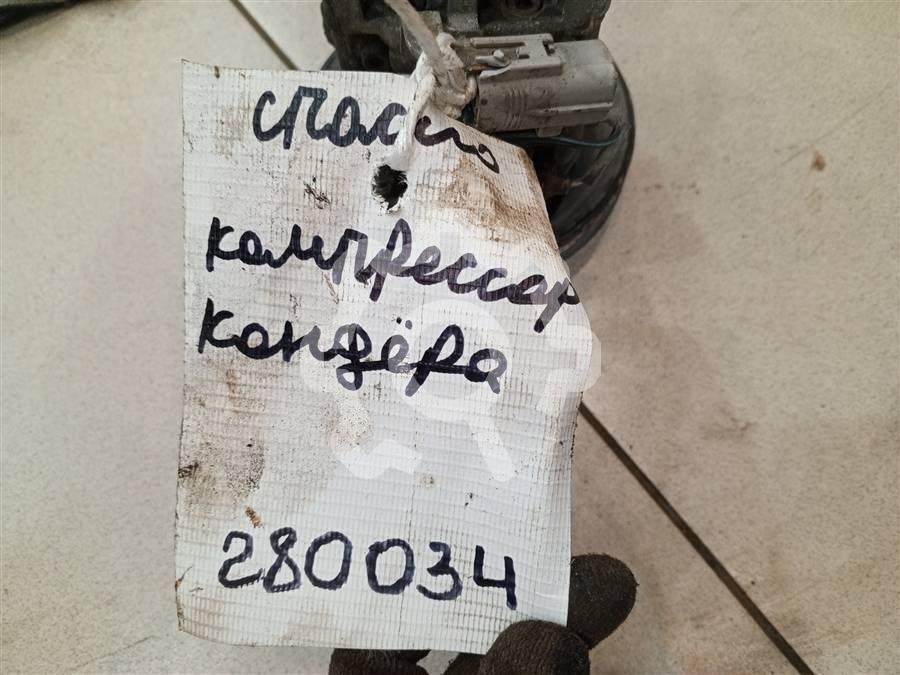 спасио
компрессор
кондёра
280034